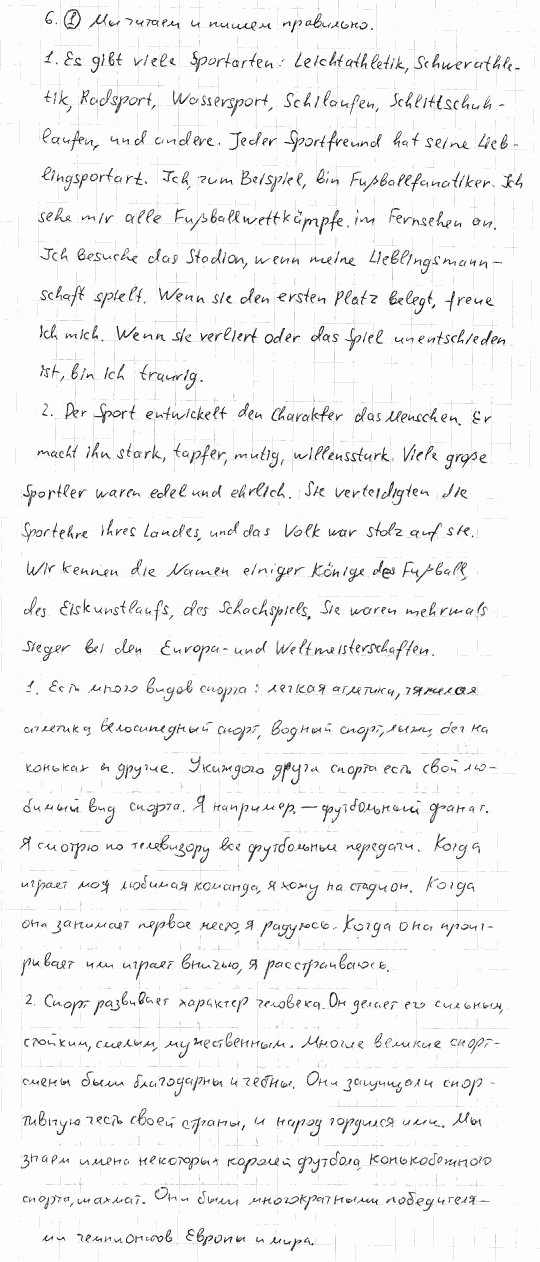 6. ① Мы читаем и пишем правильно.
1. Es gibt viele Sportarten: Leichtathletik, Schwerathle-
tik, Radsport, Wassersport, Schilaufen, Schlittschuh-
laufen, und andere. Jeder Sportfreund hat seine Lieb-
lingsportart. Ich, zum Beispiel, bin Fußballfanatiker. Ich
sehe mir alle Fußballwettkämpfe im Fernsehen an.
Ich besuche das Stadion, wenn meine Lieblingsmann-
schaft spielt. Wenn sie den ersten Platz belegt, freue
ich mich. Wenn sie verliert oder das Spiel unentschieden
ist, bin ich traurig.
2. Der Sport entwickelt den Charakter das Menschen. Er
macht ihn stark, tapfer, mutig, willensstark. Viele große
Sportler waren edel und ehrlich. Sie verteidigten die
Sportehre ihres Landes, und das Volk war stolz auf sie.
Wir kennen die Namen einiger Könige des Fußball,
des Eiskunstlaufs, des Schachspiels. Sie waren mehrmals
Sieger bei den Europa- und Weltmeisterschaften.
1. Есть много видов спорта: легкая атлетика, тяжелая
атлетика, велосипедный спорт, водный спорт, лыжи, бег на
коньках и другие. У каждого друга спорта есть свой лю-
бимый вид спорта. Я например, — футбольный фанат.
Я смотрю по телевизору все футбольные передачи. Когда
играет моя любимая команда, я хожу на стадион. Когда
она занимает первое место, я радуюсь. Когда она проиг-
рывает или играет вничью, я расстраиваюсь.
2. Спорт развивает характер человека. Он делает его сильным,
стойким, смелым, мужественным. Многие великие спорт-
смены были благодарны и честны. Они защищали спор-
тивную честь своей страны, и народ гордился ими. Мы
знаем имена некоторых королей футбола, конькобежного
спорта, шахмат. Они были многократными победителя-
ми чемпионатов Европы и мира.